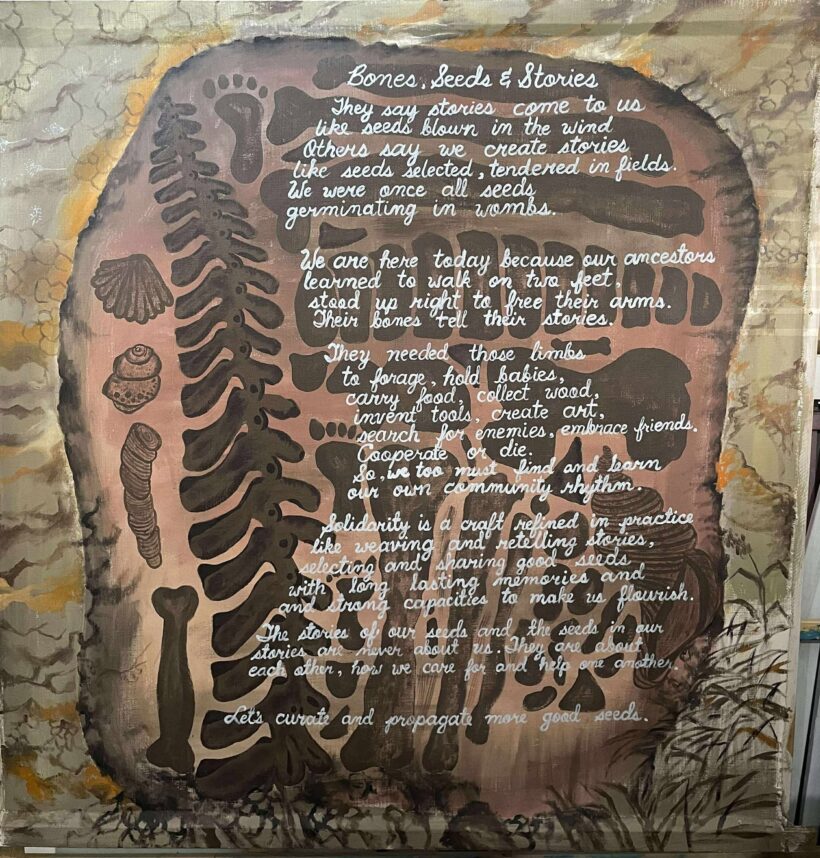 Bones, Seeds & Stories
They say stories come to us
like seeds blown in the wind
Others say we create stories
like seeds selected, tendered in fields.
We were once all seeds
germinating in wombs.
We are here today because our ancestors
learned to walk on two feet,
stood up right to free their arms.
Their bones tell their stories.
They needed those limbs
to forage, hold babies,
carry food, collect wood,
invent tools, create art,
search for enemies, embrace friends.
Cooperate or die.
So, we too must find and learn
our own community rhythm.
Solidarity is a craft refined in practice
like weaving and retelling stories,
selecting and sharing good seeds
with long lasting memories and
and strong capacities to make us flourish.
The stories of our seeds and the seeds in our
stories are never about us. They are about
each other, how we care for and help one another.
Let's curate and propagate more good seeds.